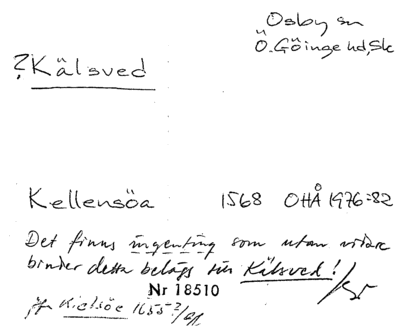 Osby sn
?Kälsved
Ö. Göinge hd, Sk
Kellensöa 1568 OHÅ 1976:82
Det finns ingenting som utan vidare
binder detta belägg till Kälsved!
Nr 18510
jfr Kielsöe 1655?